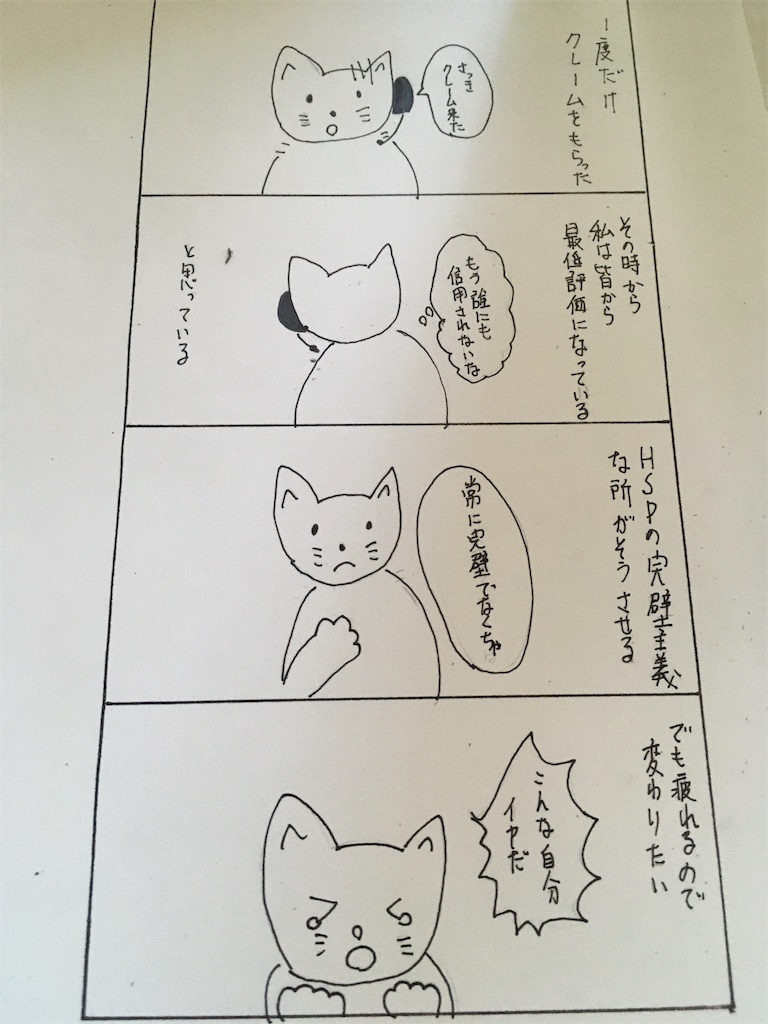 1度だけ
クレームをもらった
さっき
クレーム来た
その時から
私は皆から
最低評価になっている
もう誰にも
信用されないな
と思っている
HSPの完璧主義
な所がそうさせる
常に完璧でなくちゃ
でも疲れるので
変わりたい
こんな自分
イヤだ